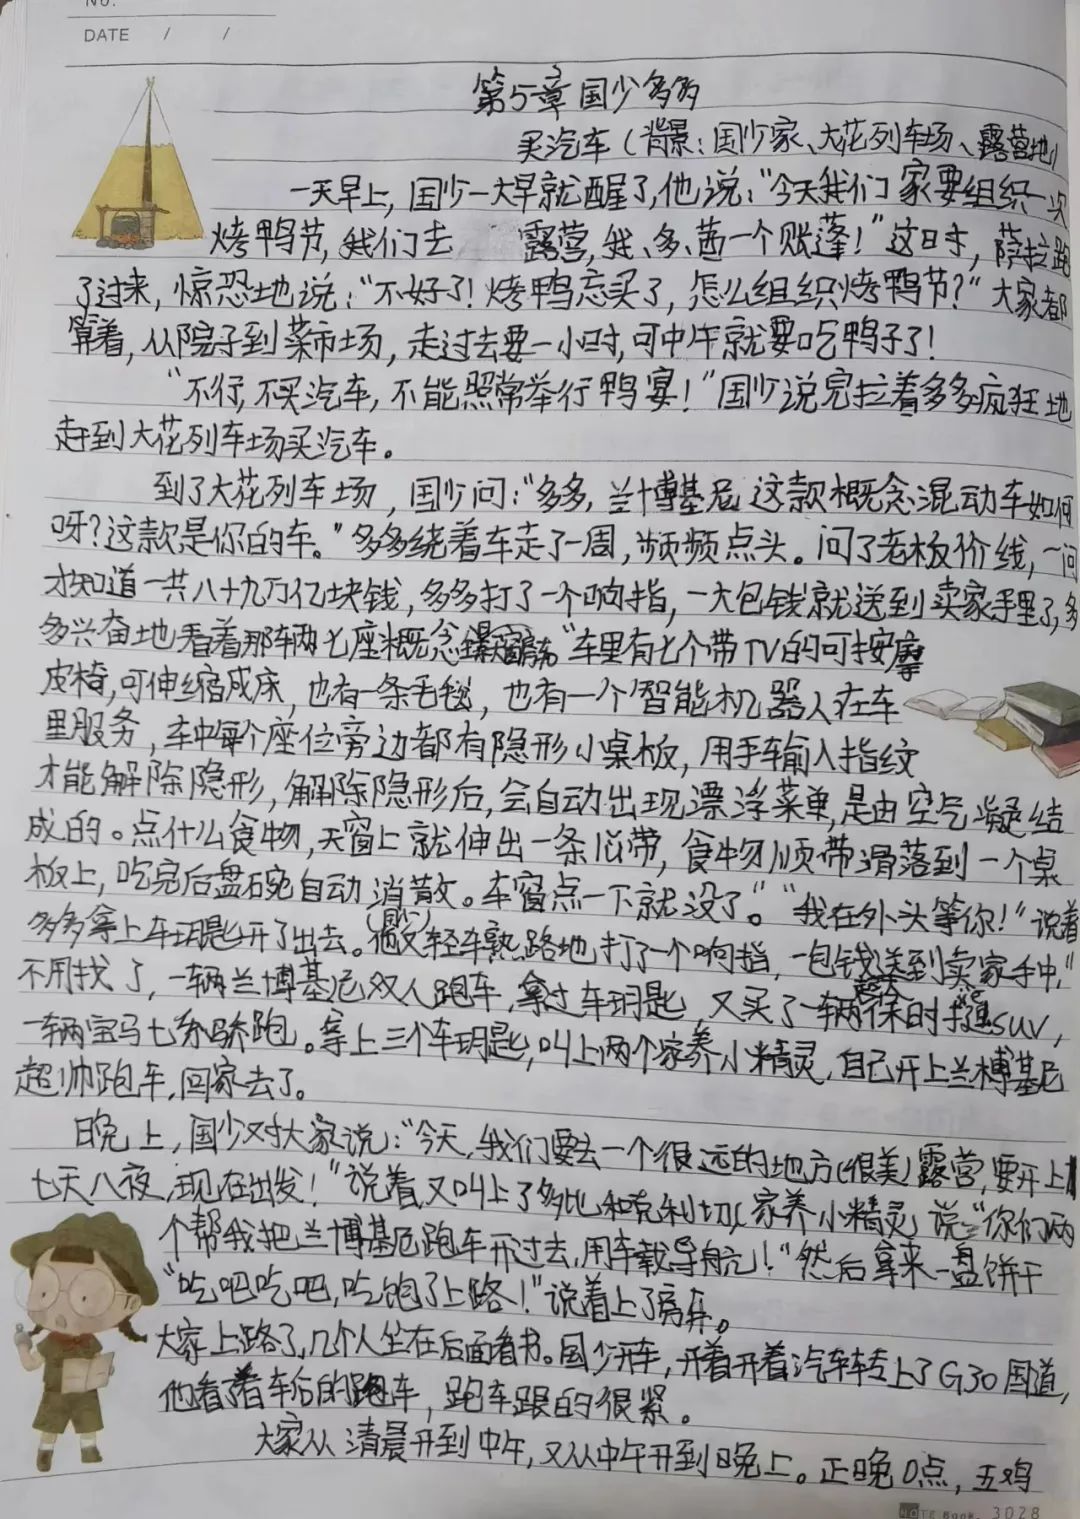 NO.
DATE / /
第5章国少多多
买汽车(背景:国少家、大花列车场、露营地)
一天早上,国少一大早就醒了,他说:“今天我们家要组织一次
烤鸭节,我们去 露营,我、多、茜一个账蓬!”这时,萨拉跑
了过来,惊恐地说:“不好了!烤鸭忘买了,怎么组织烤鸭节?”大家都
算着,从院子到菜市场,走过去要一小时,可中午就要吃鸭子了!
“不行,不买汽车,不能照常举行鸭宴!”国少说完拉着多多疯狂地
赶到大花列车场买汽车。
到了大花列车场,国少问:“多多,兰博基尼这款概念混动车如何
呀?这款是你的车。”多多绕着车走了一周,频频点头。问了老板价线,一问
才知道一共八十九万亿块钱,多多打了一个响指,一大包钱就送到卖家手里了,多
多兴奋地看着那辆七座概念 “车里有七个带TV的可按摩
皮椅,可伸缩成床,也有一条毛毯,也有一个智能机器人在车
里服务,车中每个座位旁边都有隐形小桌板,用手输入指纹
才能解除隐形,解除隐形后,会自动出现漂浮菜单,是由空气凝结
成的。点什么食物,天窗上就伸出一条 带,食物顺带滑落到一个桌
板上,吃完后盘碗自动消散。车窗点一下就没了。”“我在外头等你!”说着
多多拿上车玥匙开了出去。他(国少)又轻车熟路地打了一个响指,一包钱送到卖家手中,“
不用找了,一辆兰博基尼双人跑车,拿过车玥匙,又买了一辆 保时捷SUV,
一辆宝马七系轿跑。拿上三个车玥匙,叫上两个家养小精灵,自己开上兰博基尼
超帅跑车,回家去了。
晚上,国少对大家说:“今天,我们要去一个很远的地方(很美)露营,要开上
七天八夜,现在出发!”说着,又叫上了多比和克利切(家养小精灵)说:“你们两
个帮我把兰博基尼跑车开过去,用车载导航!”然后拿来一盘饼干
“吃吧吃吧,吃饱了上路!”说着上了 车。
大家上路了,几个人坐在后面看书。国少开车,开着开着汽车转上了G30国道,
他看了看车后的跑车,跑车跟的很紧。
大家从清晨开到中午,又从中午开到晚上。正晚0点,五鸡
NOTE Book. 3028